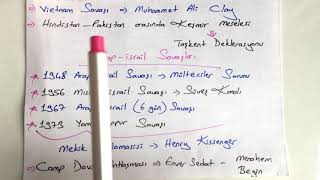 ⇒ Vietnam Savaşı ⇒ Muhammet Ali Clay
⇒ Hindistan - Pakistan arasında Keşmir Meselesi
Taşkent Deklerasyonu
-israil Savaşları
* 1948 Arap Savaşı → Mülteciler Sorunu
* 1956 Mısır Savaşı → Süveyş Kanalı
* 1967 Arap israil (6 gün) Savaşı
* 1973 Yom Kippur Savaşı
Mekik → Henry Kissenger
⇒ Camp David → Enver Sedat - Menahem
Begin